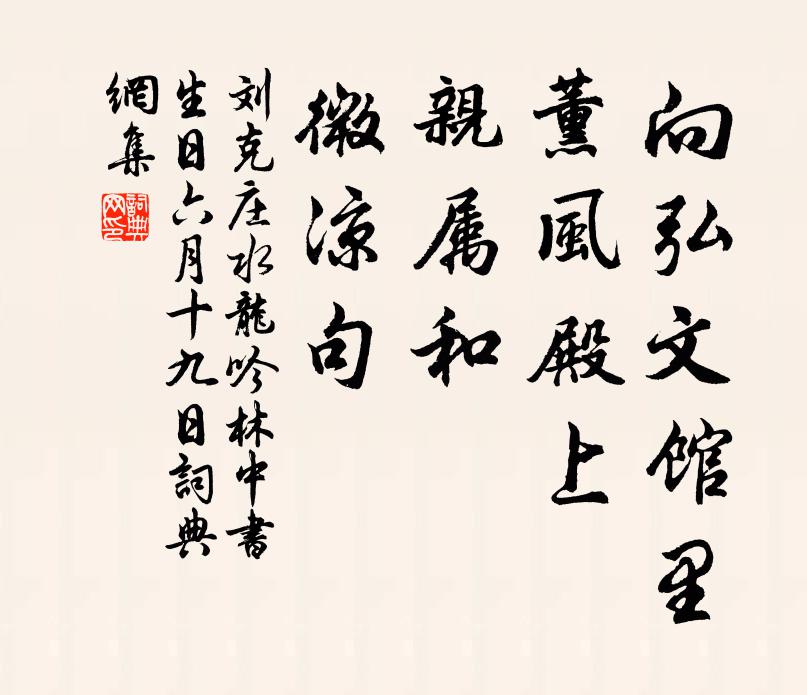 向弘文馆里
薰風殿上
親属和
微涼句
刘克庄水龍吟林中書
生日六月十九日詞典
網集
詞典网印